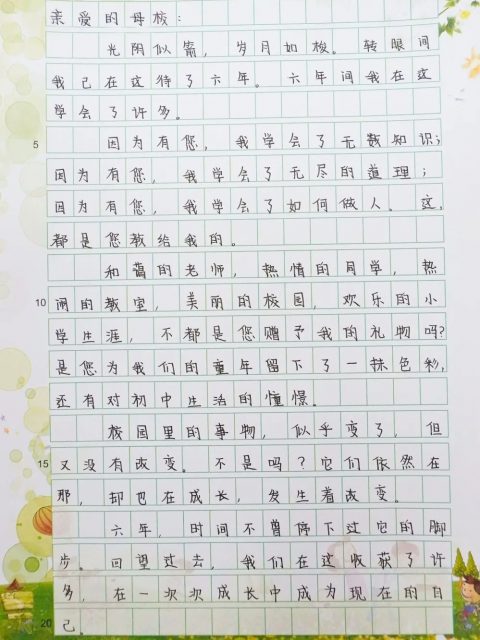 亲爱的母校：
光阴似箭，岁月如梭。转眼间
我己在这待了六年。六年间我在这
学会了许多。
5 因为有您，我学会了无数知识；
因为有您，我学会了无尽的道理；
因为有您，我学会了如何做人。这，
都是您教给我的。
和蔼的老师，热情的同学，热
10 闹的教室，美丽的校园，欢乐的小
学生涯，不都是您赠予我的礼物吗？
是您为我们的童年留下了一抹色彩，
还有对初中生活的憧憬。
校园里的事物，似乎变了，但
15 又没有改变。不是吗？它们依然在
那，却也在成长，发生着改变。
六年，时间不曾停下过它的脚
步。回望过去，我们在这收获了许
多，在一次次成长中成为现在的自
20 己。